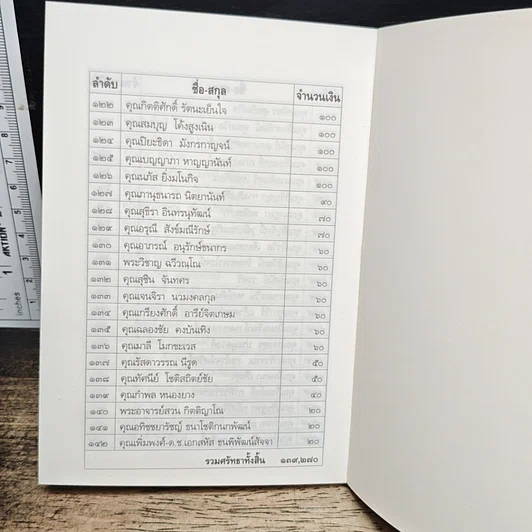 ลำดับ ชื่อ-สกุล จำนวนเงิน
๑๒๒ คุณกิตติศักดิ์ รัตนะเย็นใจ ๑๐๐
๑๒๓ คุณสมบุญ โค้งสูงเนิน ๑๐๐
๑๒๔ คุณปิยะธิดา มังกรกาญจน์ ๑๐๐
๑๒๕ คุณเบญญาภา หาญญานันท์ ๑๐๐
๑๒๖ คุณนภัส ยิ่งมโนกิจ ๑๐๐
๑๒๗ คุณภานุธนารถ นิตยานันท์ ๙๐
๑๒๘ คุณสุธีรา อินทรนุทัฒน์ ๗๐
๑๒๙ คุณอรุณี สังข์มณีรักษ์ ๗๐
๑๓๐ คุณอาภรณ์ อนุรักษ์ธนากร ๖๐
๑๓๑ พระวิชาญ ฉวีวณฺโณ ๖๐
๑๓๒ คุณสุชิน จันทศร ๖๐
๑๓๓ คุณเจนจิรา นวมงคลกุล ๖๐
๑๓๔ คุณเกรียงศักดิ์ อารีย์จิตเกษม ๖๐
๑๓๕ คุณฉลองชัย คงบันเทิง ๖๐
๑๓๖ คุณมาลี โมกขะเวส ๖๐
๑๓๗ คุณรัสดาวรรณ นีรูด ๕๐
๑๓๘ คุณทัศนีย์ โชติสถิตย์ชัย ๕๐
๑๓๙ คุณกำพล หนองยาง ๔๐
๑๔๐ พระอาจารย์สวน กิตติญาโณ ๒๐
๑๔๑ คุณอทิชชยารัชญ์ ธนาโชติกนกพัฒน์ ๒๐
๑๔๒ คุณเพิ่มพงศ์-ด.ช.เอกสหัส ธนพิพัฒน์สัจจา ๒๐
รวมศรัทธาทั้งสิ้น ๑๓๙,๒๗๐
inches
1